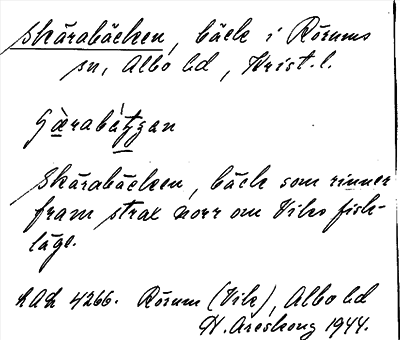 Skärabäcken, bäck i Rörums
sn, Albo hd, Krist. l.
Skärabäcken, bäck som rinner
fram strax norr om Viks fisk-
läge.
LAL 4266. Rörum (Vik), Albo hd
H. Areskoug 1944.